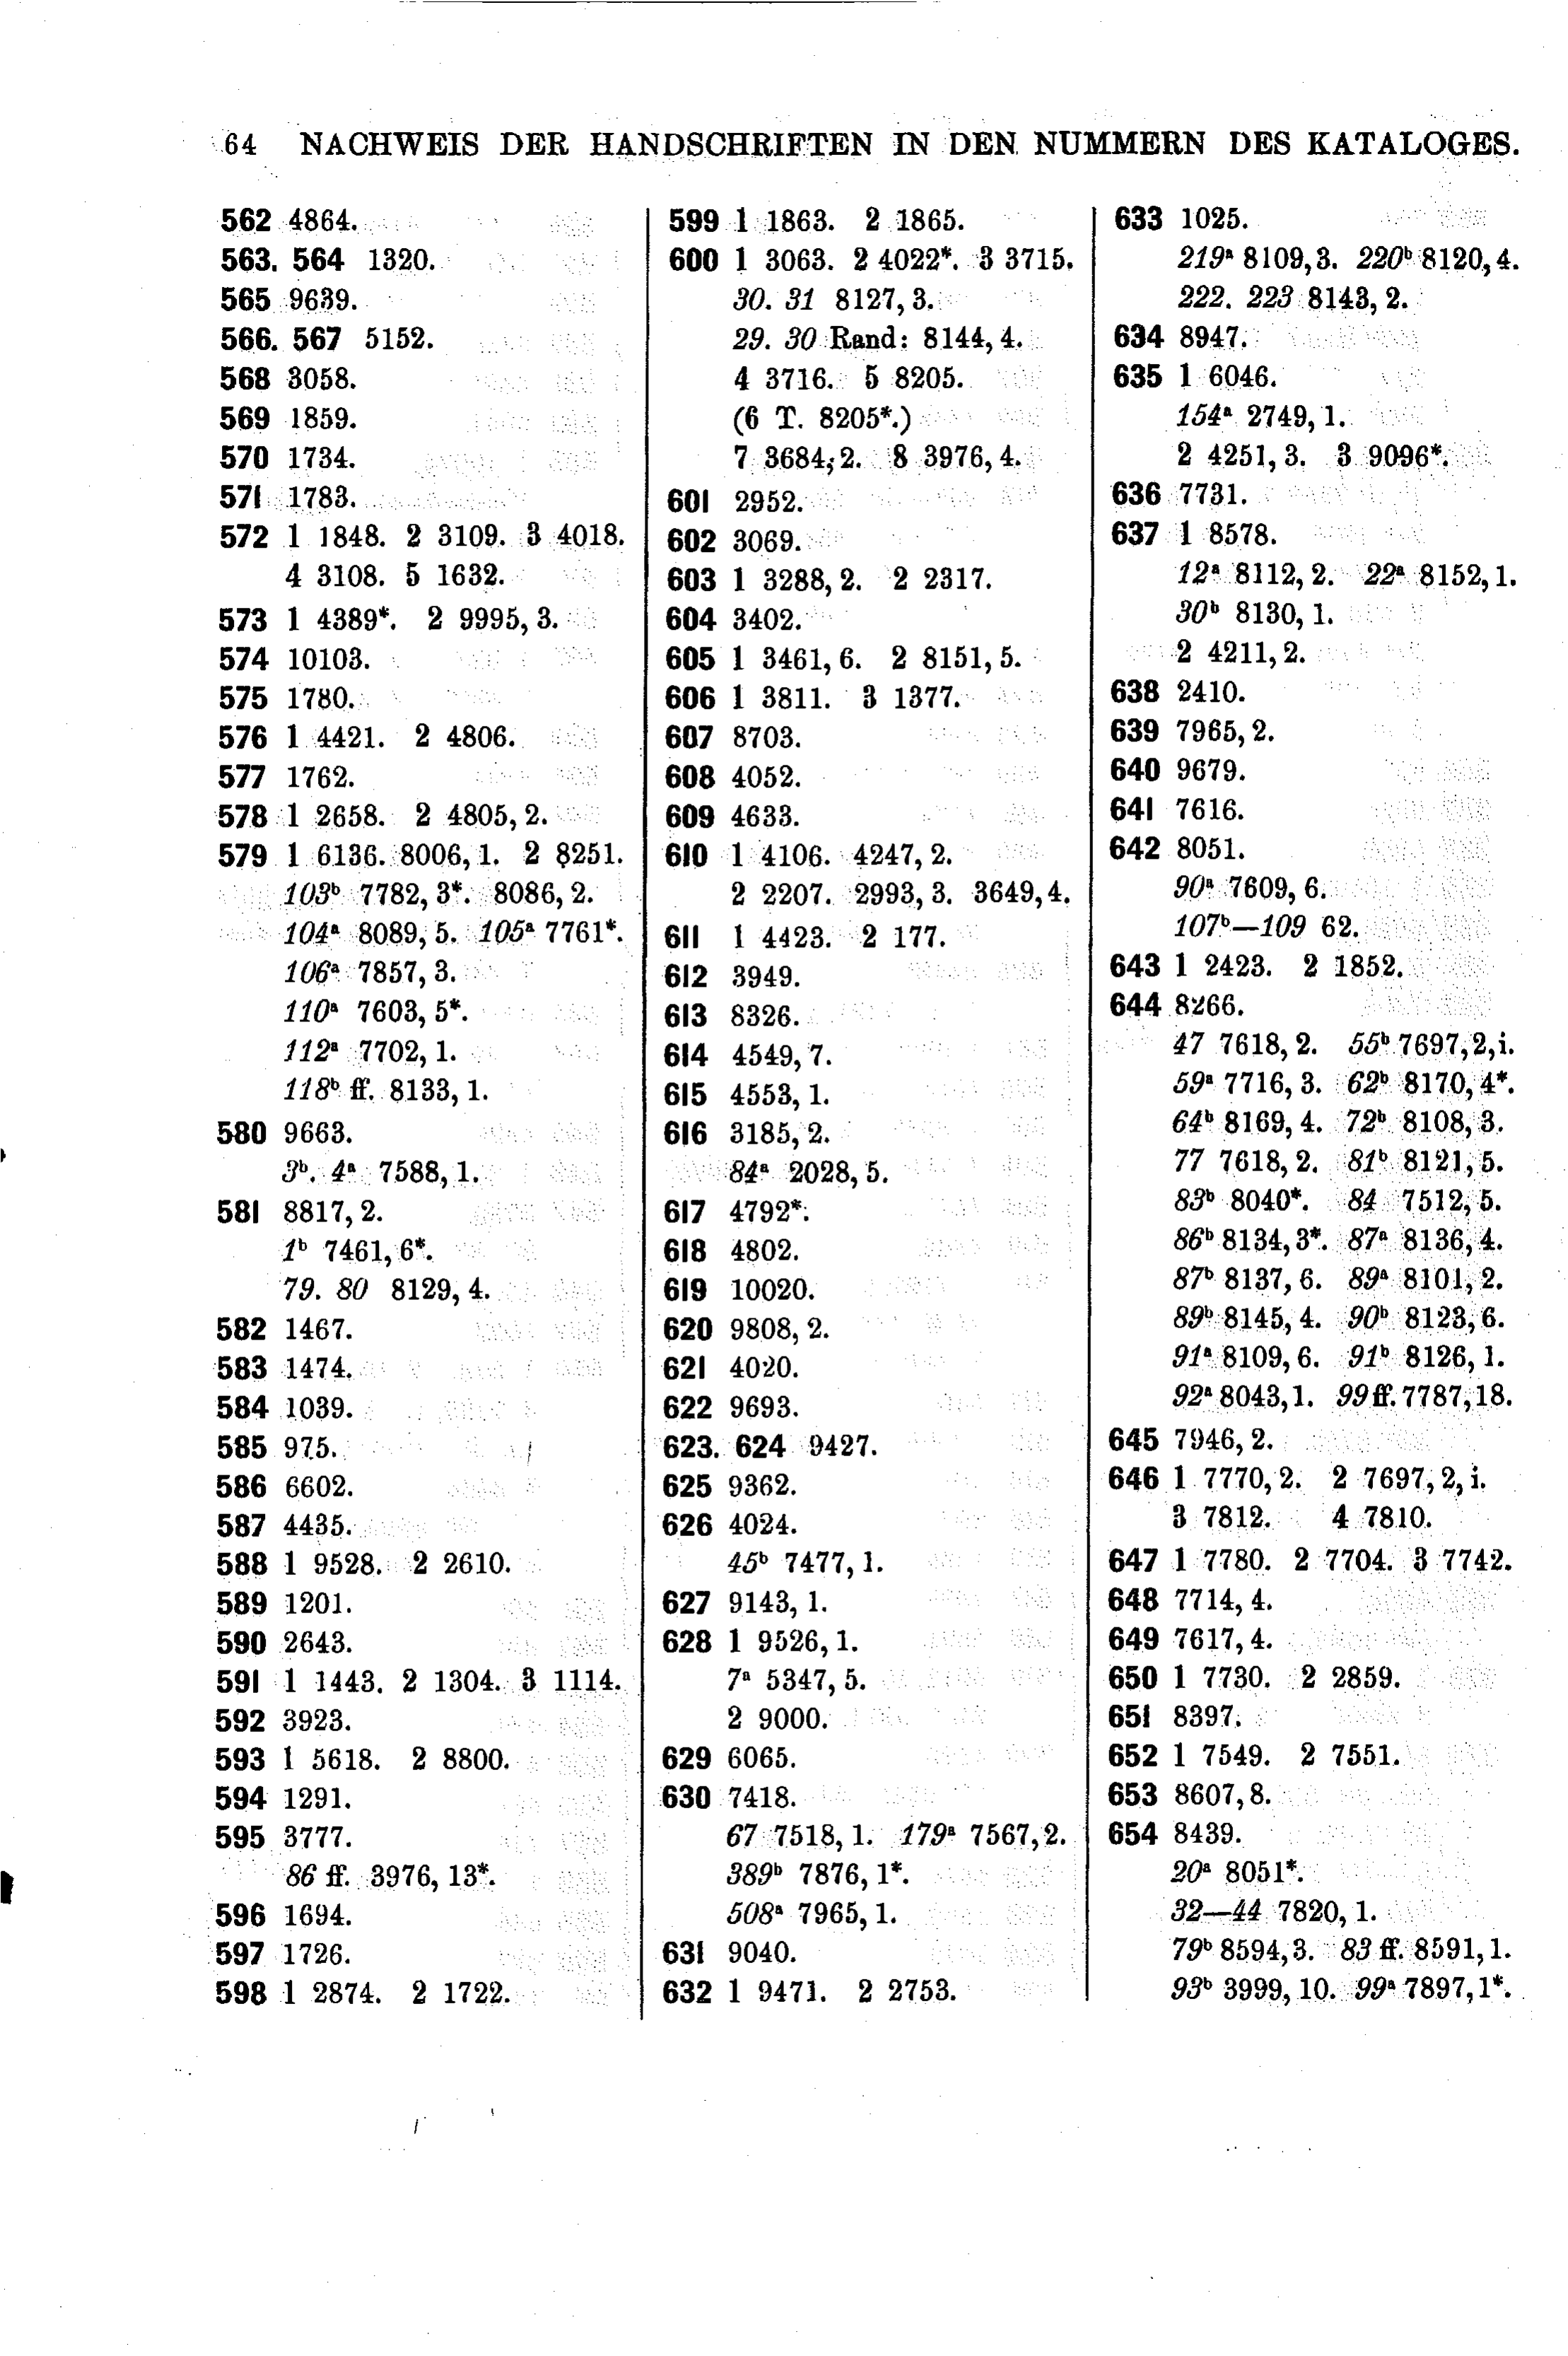 64 NACHWEIS DER HANDSCHRIFTEN IN DEN NUMMERN DES KATALOGES.
562 4864.
563. 564 1320.
565 9639.
566. 567 5152.
568 3058.
569 1859.
570 1734.
571 1783.
572 1 1848. 2 3109. 3 4018.
4 3108. 5 1632.
573 1 4389*. 2 9995, 3.
574 10103.
575 1780.
576 1 4421. 2 4806.
577 1762.
578 1 2658. 2 4805, 2.
579 1 6136. 8006, 1. 2 8251.
103ᵇ 7782, 3*. 8086, 2.
104ᵃ 8089, 5. 105ᵃ 7761*.
106ᵃ 7857, 3.
110ᵃ 7603, 5*.
112ᵃ 7702, 1.
118ᵇ ff. 8133, 1.
580 9663.
3ᵇ. 4ᵃ 7588, 1.
581 8817, 2.
1ᵇ 7461, 6*.
79. 80 8129, 4.
582 1467.
583 1474.
584 1039.
585 975.
586 6602.
587 4435.
588 1 9528. 2 2610.
589 1201.
590 2643.
591 1 1443. 2 1304. 3 1114.
592 3923.
593 1 5618. 2 8800.
594 1291.
595 3777.
86 ff. 3976, 13*.
596 1694.
597 1726.
598 1 2874. 2 1722.
599 1 1863. 2 1865.
600 1 3063. 2 4022*. 3 3715.
30. 31 8127, 3.
29. 30 Rand: 8144, 4.
4 3716. 5 8205.
(6 T. 8205*.)
7 3684, 2. 8 3976, 4.
601 2952.
602 3069.
603 1 3288, 2. 2 2317.
604 3402.
605 1 3461, 6. 2 8151, 5.
606 1 3811. 3 1377.
607 8703.
608 4052.
609 4633.
610 1 4106. 4247, 2.
2 2207. 2993, 3. 3649, 4.
611 1 4423. 2 177.
612 3949.
613 8326.
614 4549, 7.
615 4553, 1.
616 3185, 2.
84ᵃ 2028, 5.
617 4792*.
618 4802.
619 10020.
620 9808, 2.
621 4020.
622 9693.
623. 624 9427.
625 9362.
626 4024.
45ᵇ 7477, 1.
627 9143, 1.
628 1 9526, 1.
7ᵃ 5347, 5.
2 9000.
629 6065.
630 7418.
67 7518, 1. 179ᵃ 7567, 2.
389ᵇ 7876, 1*.
508ᵃ 7965, 1.
631 9040.
632 1 9471. 2 2753.
633 1025.
219ᵃ 8109, 3. 220ᵇ 8120, 4.
222. 223 8143, 2.
634 8947.
635 1 6046.
154ᵃ 2749, 1.
2 4251, 3. 3 9096*.
636 7731.
637 1 8578.
12ᵃ 8112, 2. 22ᵃ 8152, 1.
30ᵇ 8130, 1.
2 4211, 2.
638 2410.
639 7965, 2.
640 9679.
641 7616.
642 8051.
90ᵃ 7609, 6.
107ᵇ—109 62.
643 1 2423. 2 1852.
644 8266.
47 7618, 2. 55ᵇ 7697, 2, i.
59ᵃ 7716, 3. 62ᵇ 8170, 4*.
64ᵇ 8169, 4. 72ᵇ 8108, 3.
77 7618, 2. 81ᵇ 8121, 5.
83ᵇ 8040*. 84 7512, 5.
86ᵇ 8134, 3*. 87ᵃ 8136, 4.
87ᵇ 8137, 6. 89ᵃ 8101, 2.
89ᵇ 8145, 4. 90ᵇ 8123, 6.
91ᵃ 8109, 6. 91ᵇ 8126, 1.
92ᵃ 8043, 1. 99 ff. 7787, 18.
645 7946, 2.
646 1 7770, 2. 2 7697, 2, i.
3 7812. 4 7810.
647 1 7780. 2 7704. 3 7742.
648 7714, 4.
649 7617, 4.
650 1 7730. 2 2859.
651 8397.
652 1 7549. 2 7551.
653 8607, 8.
654 8439.
20ᵃ 8051*.
32—44 7820, 1.
79ᵇ 8594, 3. 83 ff. 8591, 1.
93ᵇ 3999, 10. 99ᵃ 7897, 1*.